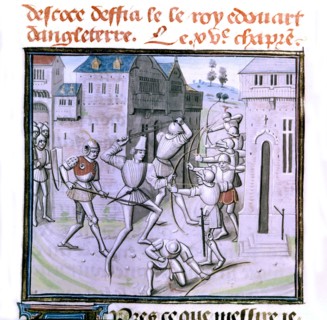 descoce deffia le le roy edouart
dangleterre. Le xv.e chap.re
Pres ce que messire ie